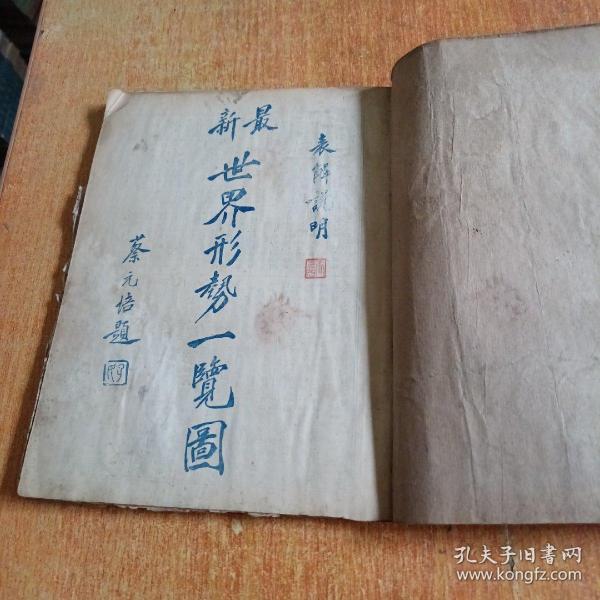 表解説明
最新
世界形勢一覽圖
蔡元培題
孔夫子旧書网
www.kongfz.com